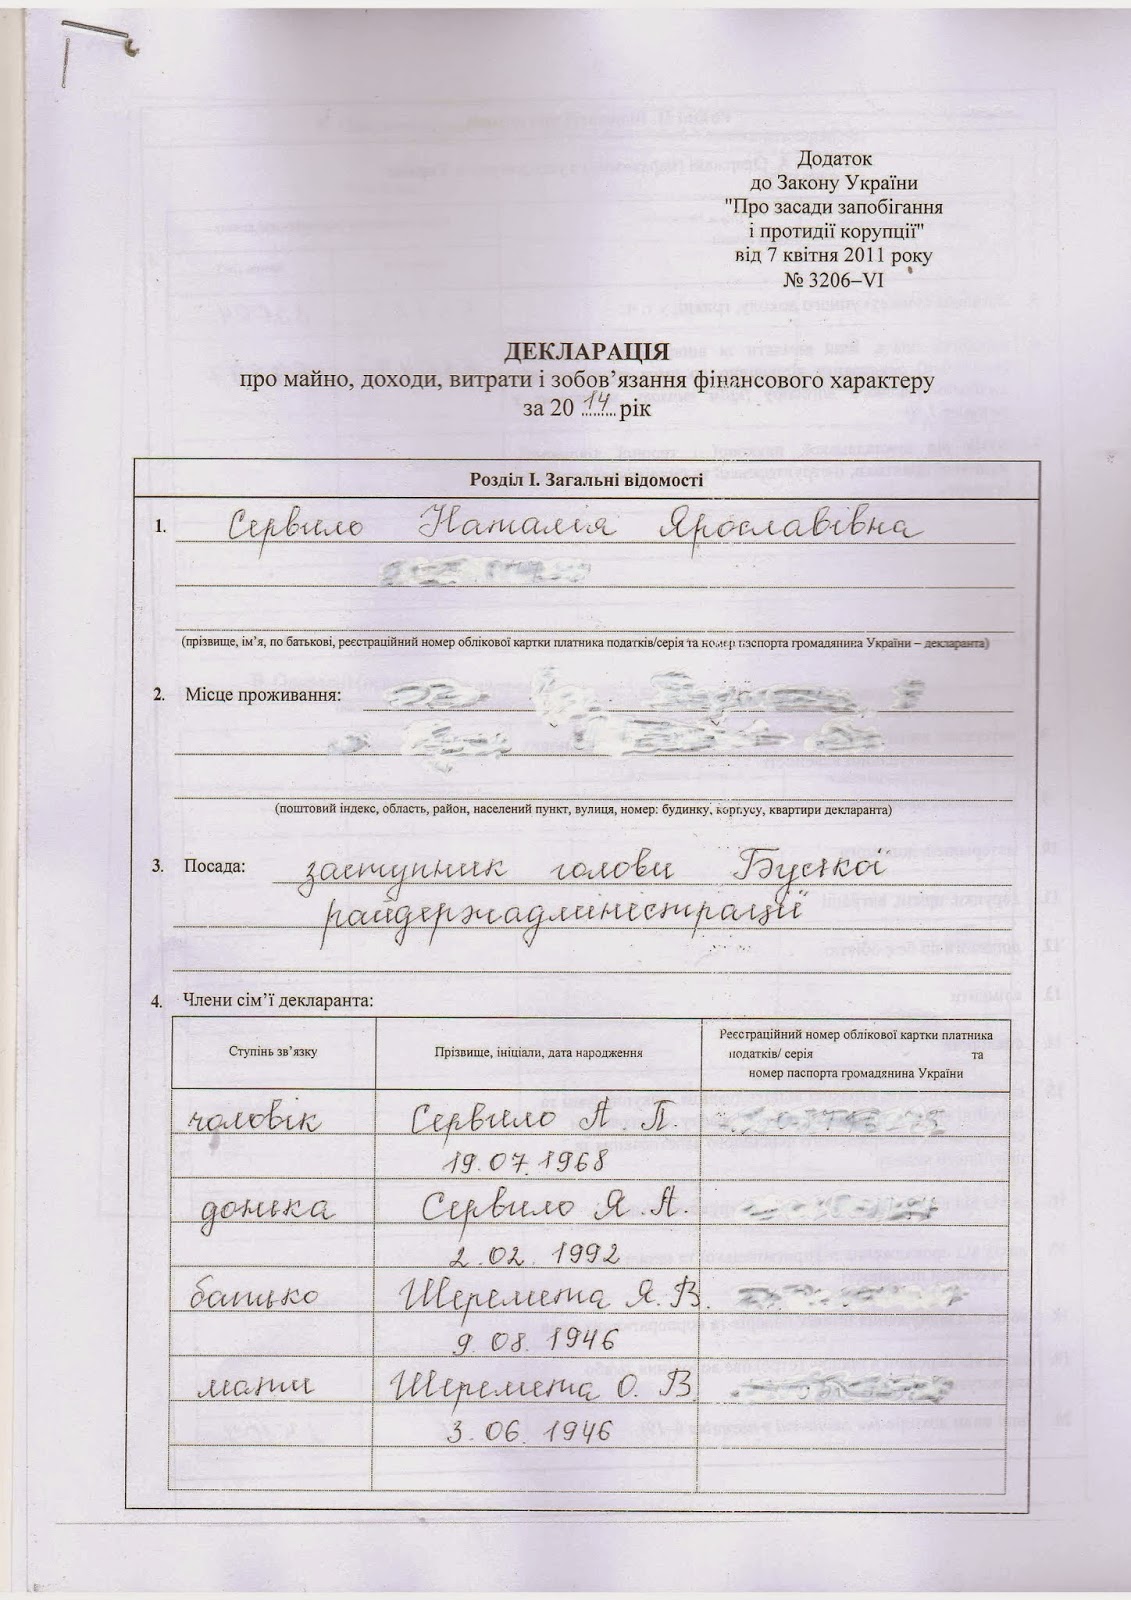 Додаток
до Закону України
"Про засади запобігання
і протидії корупції"
від 7 квітня 2011 року
№ 3206–VI
ДЕКЛАРАЦІЯ
про майно, доходи, витрати і зобов’язання фінансового характеру
за 2014 рік
Розділ І. Загальні відомості
1. Сервило Наталія Ярославівна
(прізвище, ім’я, по батькові, реєстраційний номер облікової картки платника податків/серія та номер паспорта громадянина України – декларанта)
2. Місце проживання:
(поштовий індекс, область, район, населений пункт, вулиця, номер: будинку, корпусу, квартири декларанта)
3. Посада: заступник голови Буської
райдержадміністрації
4. Члени сім’ї декларанта:
Ступінь зв’язку Прізвище, ініціали, дата народження Реєстраційний номер облікової картки платника
податків/ серія та
номер паспорта громадянина України
чоловік Сервило А. П.
19.07.1968
донька Сервило Я. А.
2.02.1992
батько Шеремета Я. В.
9.08.1946
мати Шеремета О. В.
3.06.1946